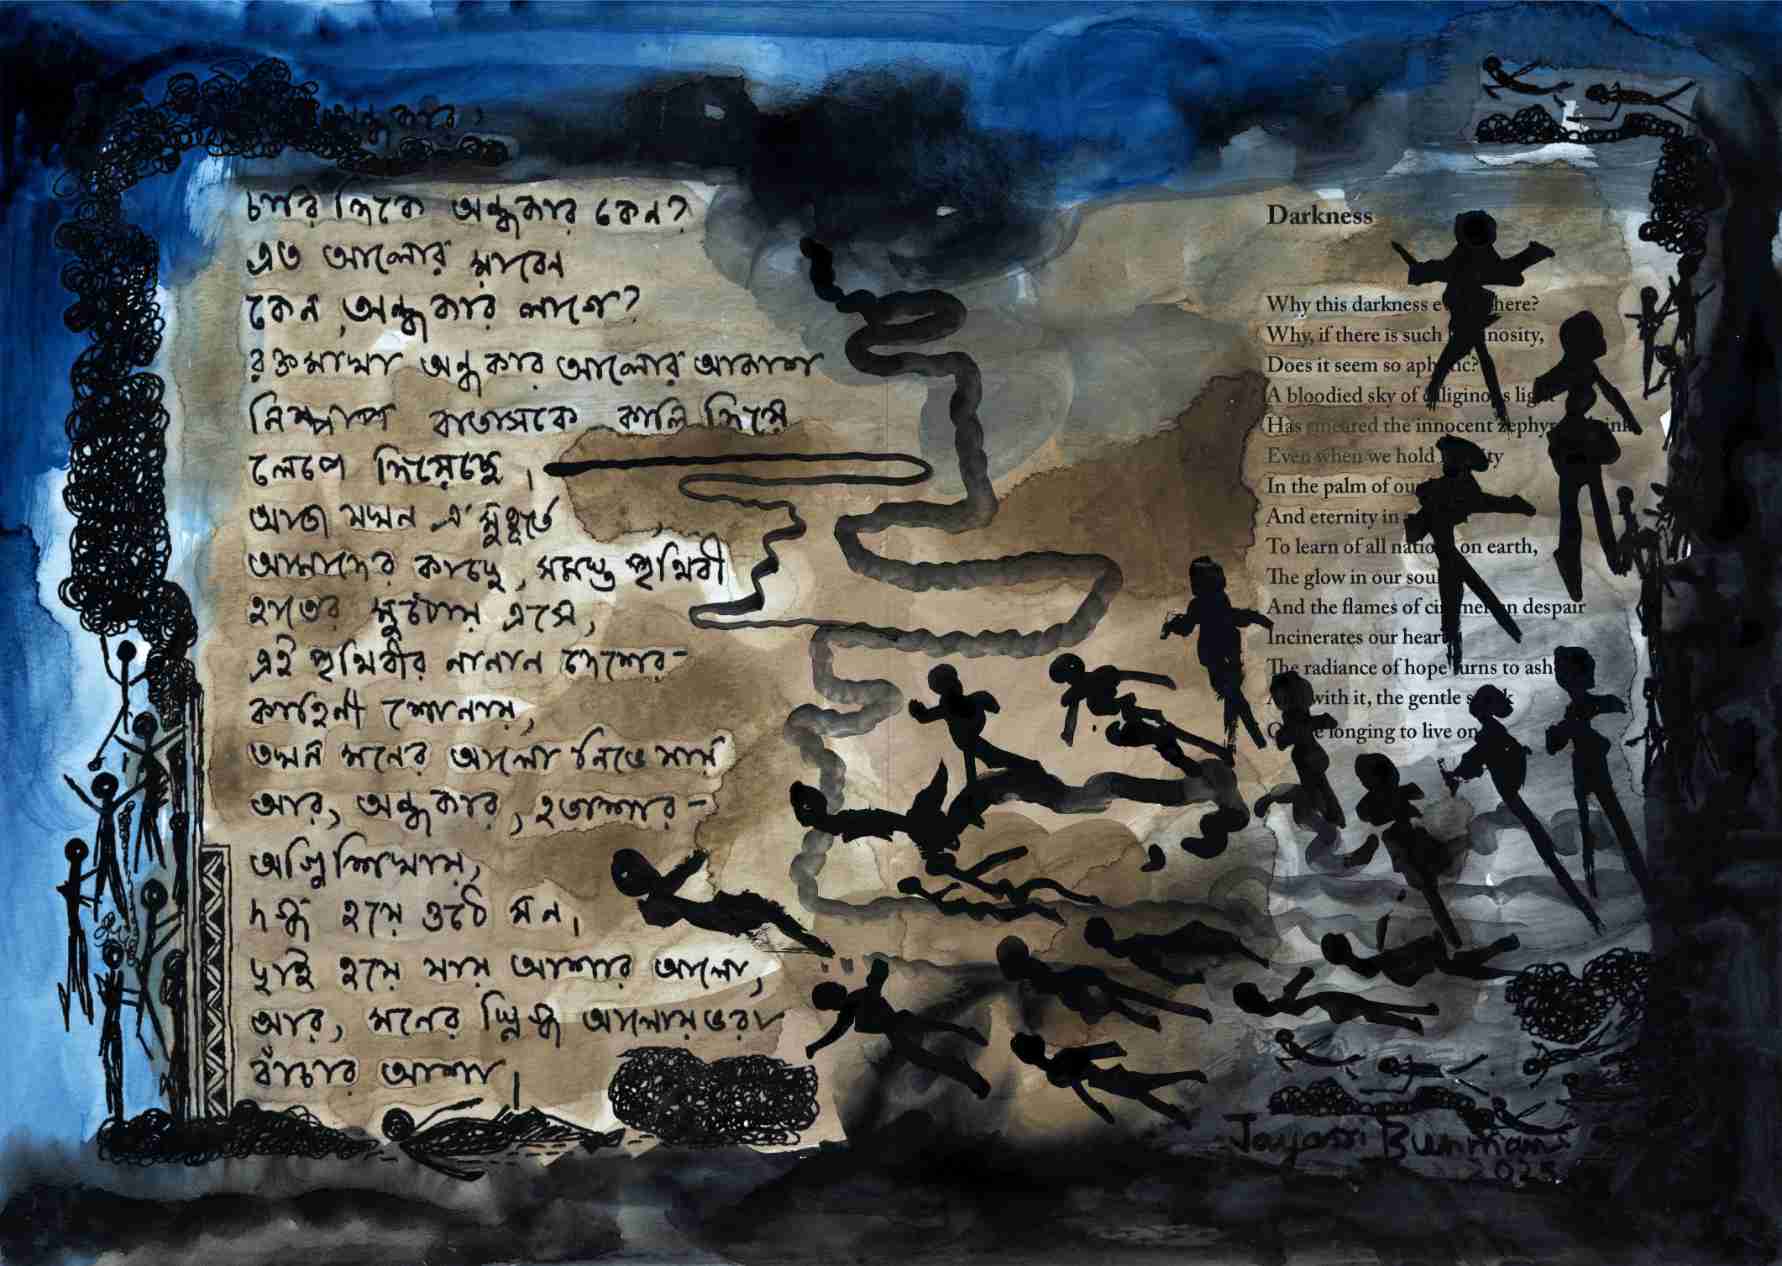 অন্ধকার
চারিদিকে অন্ধকার কেন?
এত আলোর মাঝেন
কেন, অন্ধকার লাগে?
রক্তমাখা অন্ধকার আলোর আকাশ
নিষ্পাপ বাতাসকে কালি দিয়ে
লেপে দিয়েছে।
আজ যখন এ মুহূর্তে
আমাদের কাছে, সমস্ত পৃথিবী
হাতের মুঠোয় এসে,
এই পৃথিবীর নানান দেশের-
কাহিনী শোনায়,
তখন মনের আলো নিভে যায়
আর, অন্ধকার, হতাশার-
অগ্নিশিখায়,
দগ্ধ হয়ে ওঠে মন।
ছাই হয়ে যায় আশার আলো,
আর, মনের স্নিগ্ধ আলোয়ভরা
বাঁচার আশা।
Darkness
Why this darkness
Why, if there is such
Does it seem so
A bloodied sky of
Has smeared the innocent zephyr
Even when we hold
In the palm of our
And eternity in
To learn of all nations on earth,
The glow in our soul
And the flames of despair
Incinerates our heart
The radiance of hope turns to ash
with it, the gentle
longing to live on
Jayasri Burman
2025